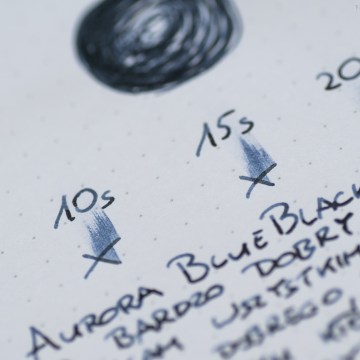 20
15s
10s
AURORA BLUE BLACK
BARDZO DOBRY
WSZYSTKIM
DOBREGO